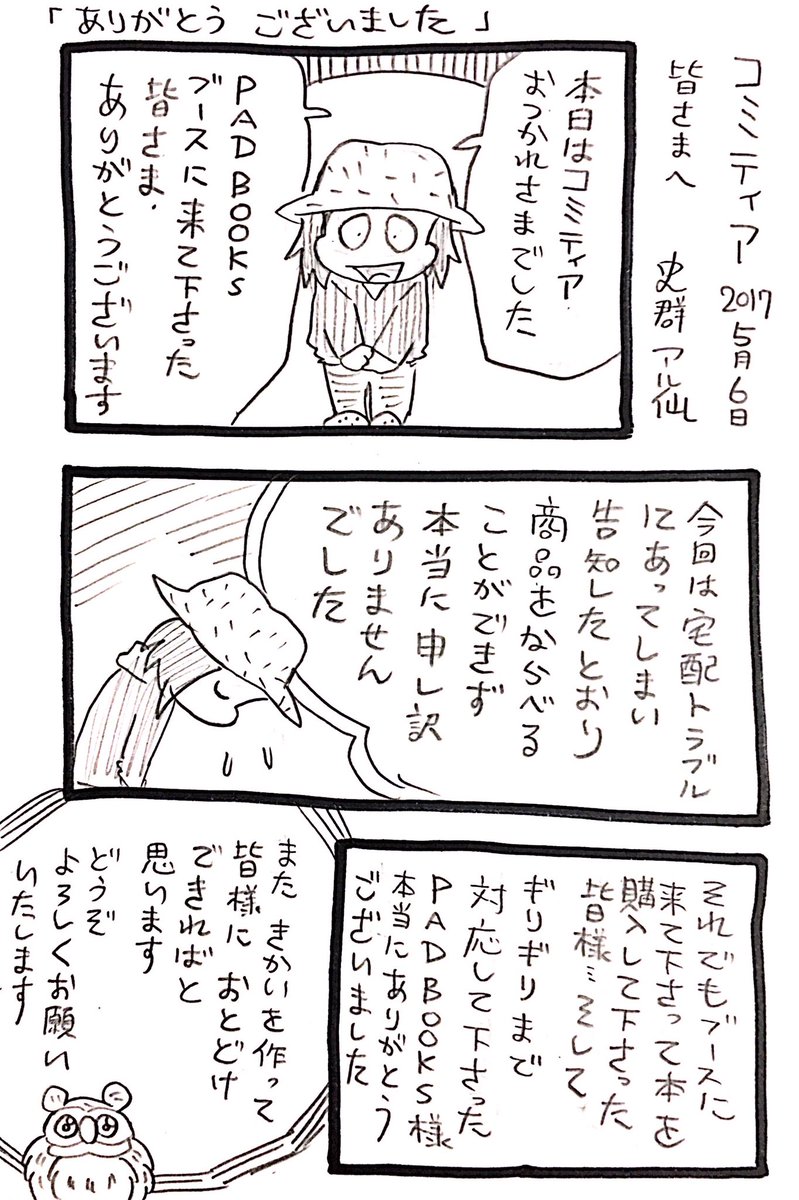 「ありがとう ございました」
コミティア 2017 5月6日
皆さまへ 史群アル仙
本日はコミティア
おつかれさまでした
PAD BOOKS
ブースに来て下さった
皆さま、
ありがとうございます
今回は宅配トラブル
にあってしまい
告知したとおり
商品をならべる
ことができず
本当に申し訳
ありません
でした
それでもブースに
来て下さって本を
購入して下さった
皆様…そして
ギリギリまで
対応して下さった
PAD BOOKS様
本当にありがとう
ございました
また きかいを作って
皆様に おとどけ
できればと
思います
どうぞ
よろしくお願い
いたします